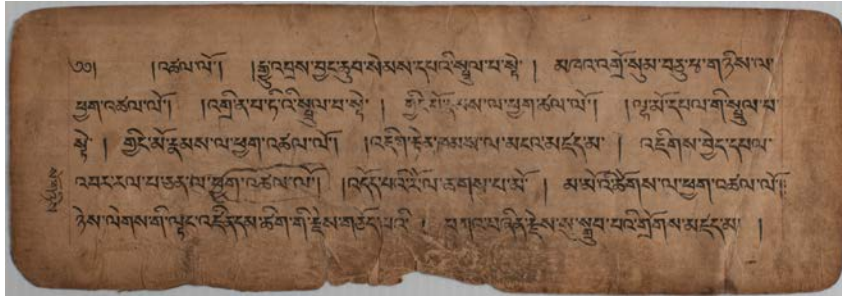 ༄༅། །འཚལ་ལོ། །རྒྱུ་འབྲས་བྱང་ཆུབ་སེམས་དཔའི་སྤྲུལ་པ་སྟེ། མཁའ་འགྲོ་སུམ་བརྒྱ་ཕ་གཉིས་ལ་
ཕྱག་འཚལ་ལོ། །འགྲི་ན་པ་ཏི་འི་སྤྲུལ་པ་སྟེ། གྱིང་མོ་རྣམས་ལ་ཕྱག་ཚལ་ལོ། །ལྷ་མོ་དཔལ་གི་སྤྲུལ་པ་
སྟེ། གྱིང་མོ་རྣམས་ལ་ཕྱག་འཚལ་ལོ། །འཇིག་རྟེན་ཁམས་ལ་མངའ་མཛད་མ། འཇིགས་བྱེད་དཔལ་
འབར་རལ་པ་ཅན་ལ་ཕྱག་འཚལ་ལོ། །འདོད་པའི་རོ་ལ་ཆགས་པ་མོ། མ་མོའི་ཚོགས་ལ་ཕྱག་འཚལ་ལོ།
ཉེས་ལེགས་གི་ལྟང་འཛིན་དམ་ཚིག་གི་རྗེས་གཅོད་པའི། བཀའ་བཞིན་རྗེས་སུ་སྒྲུབ་པའི་གྲོགས་མཛད་མ། །